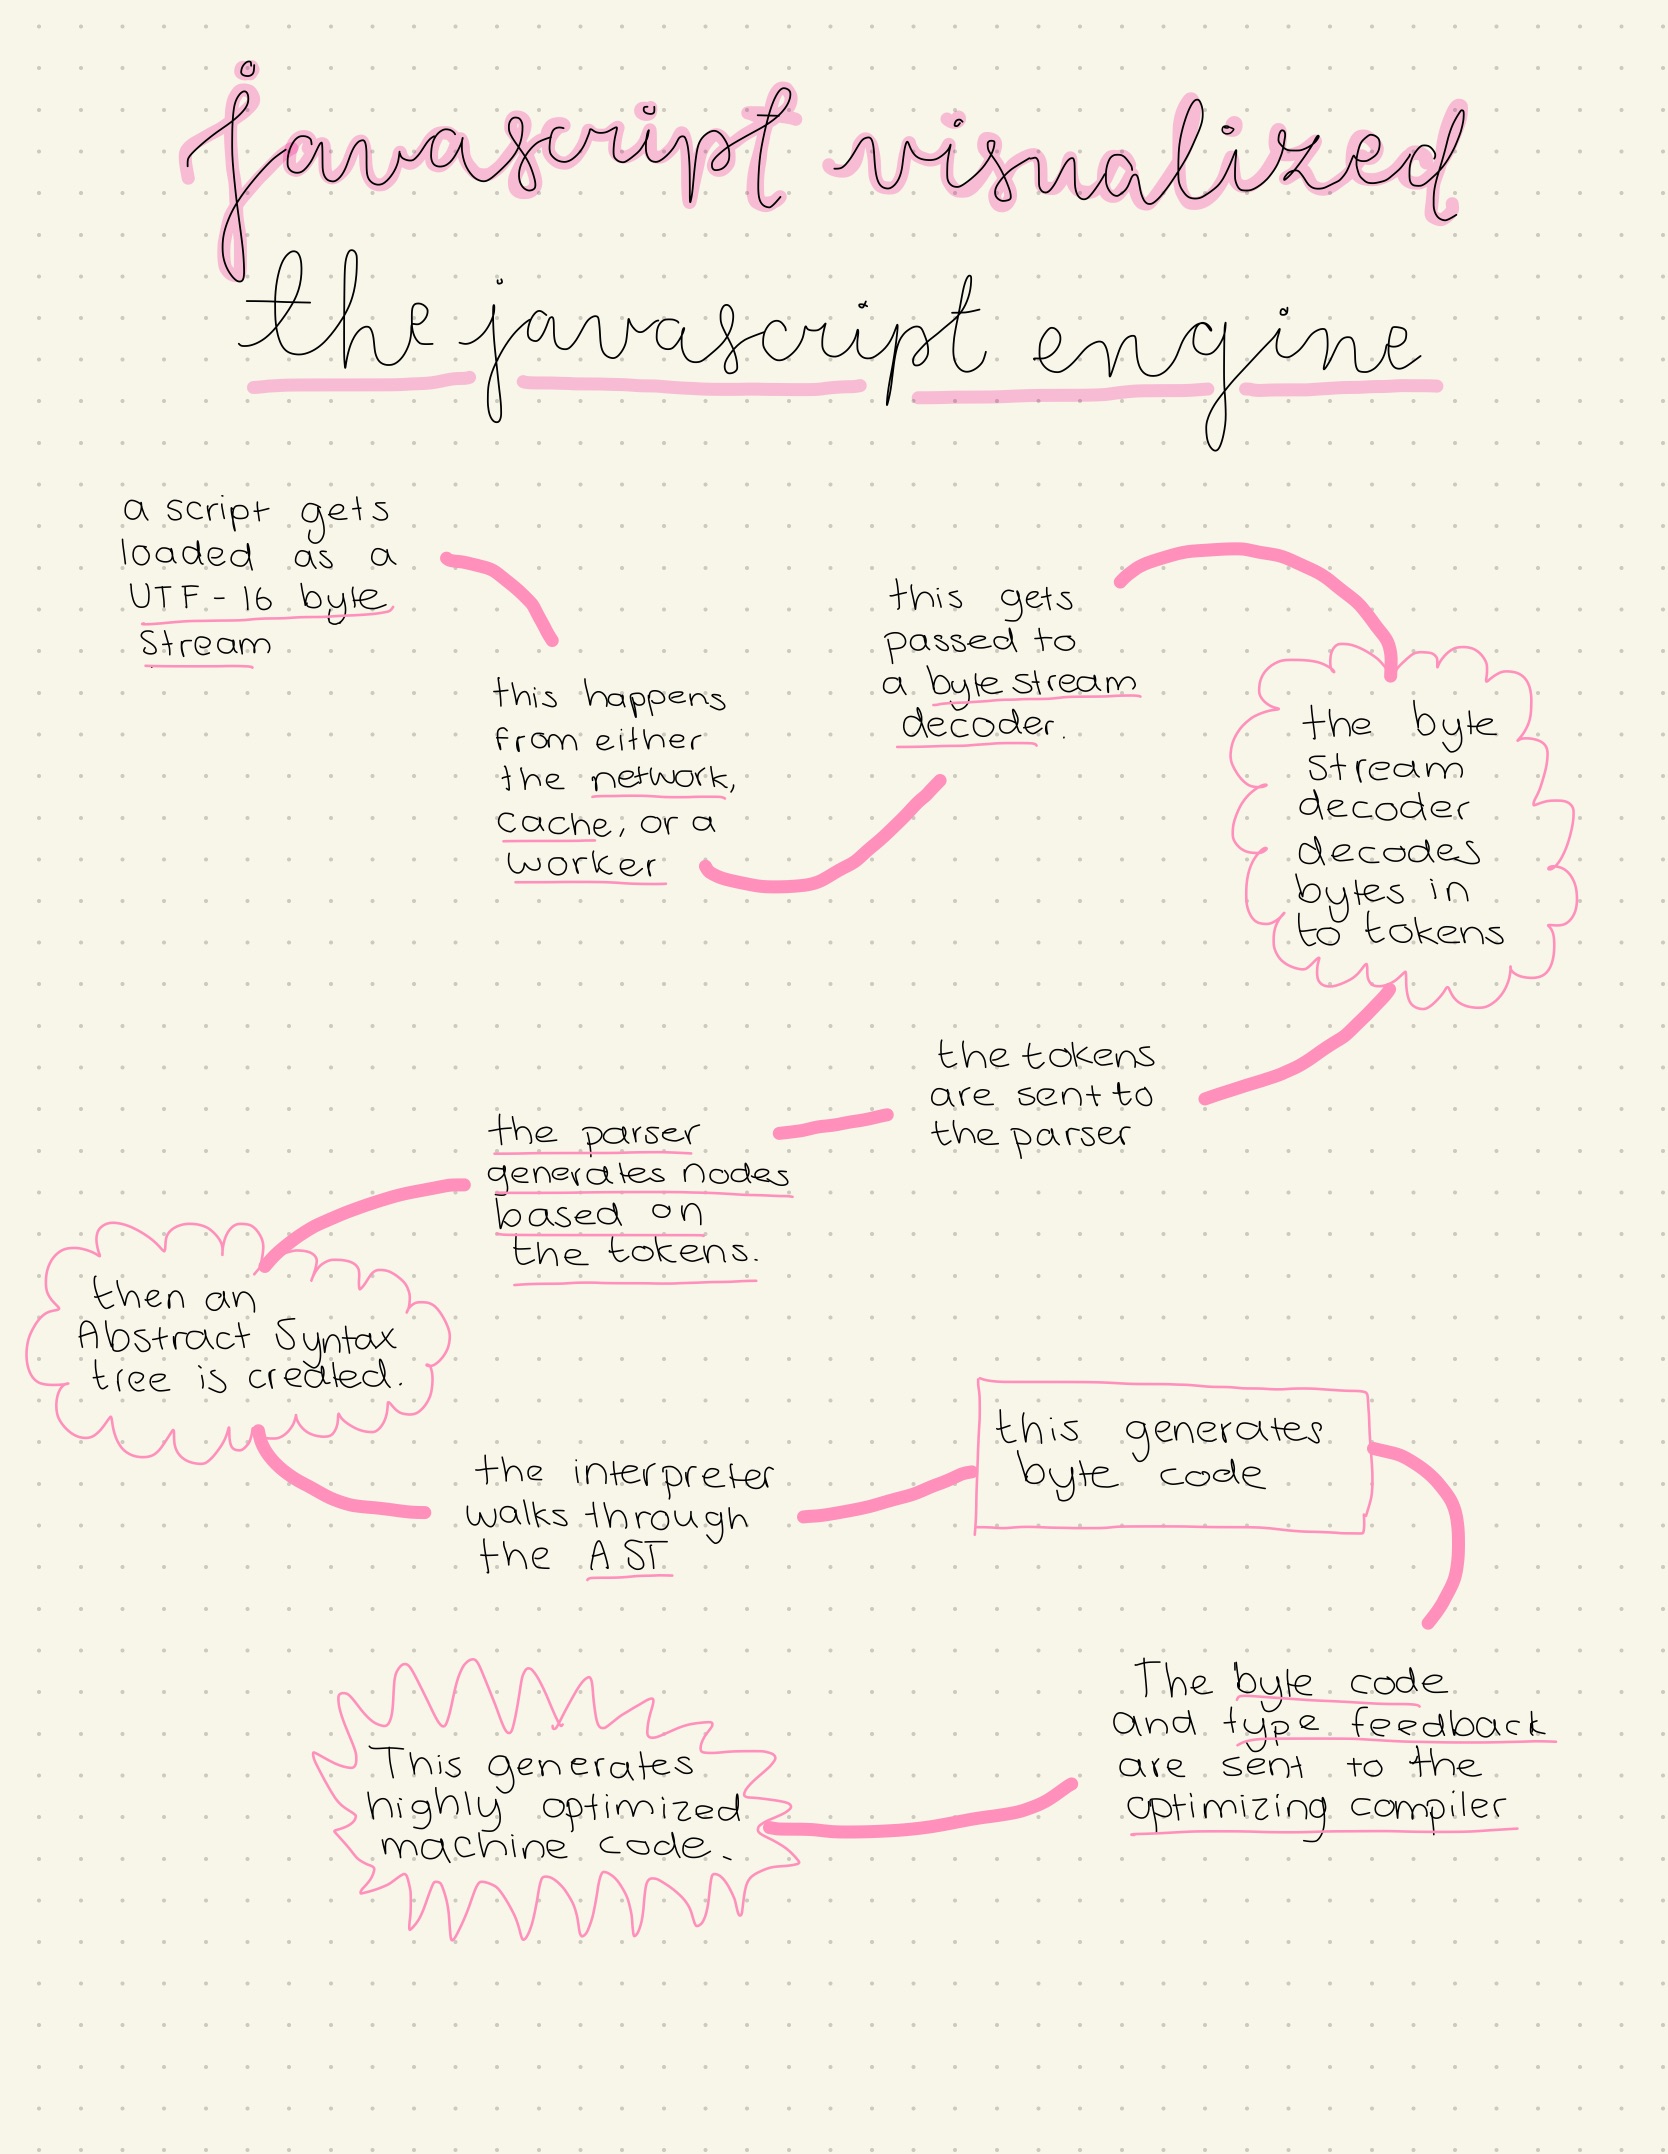 javascript visualized
the javascript engine
a script gets
loaded as a
UTF-16 byte
stream
this happens
from either
the network,
cache, or a
worker
this gets
passed to
a byte stream
decoder.
the byte
stream
decoder
decodes
bytes in
to tokens
the tokens
are sent to
the parser
the parser
generates nodes
based on
the tokens.
then an
Abstract Syntax
tree is created.
the interpreter
walks through
the AST
this generates
byte code
The byte code
and type feedback
are sent to the
optimizing compiler
This generates
highly optimized
machine code.